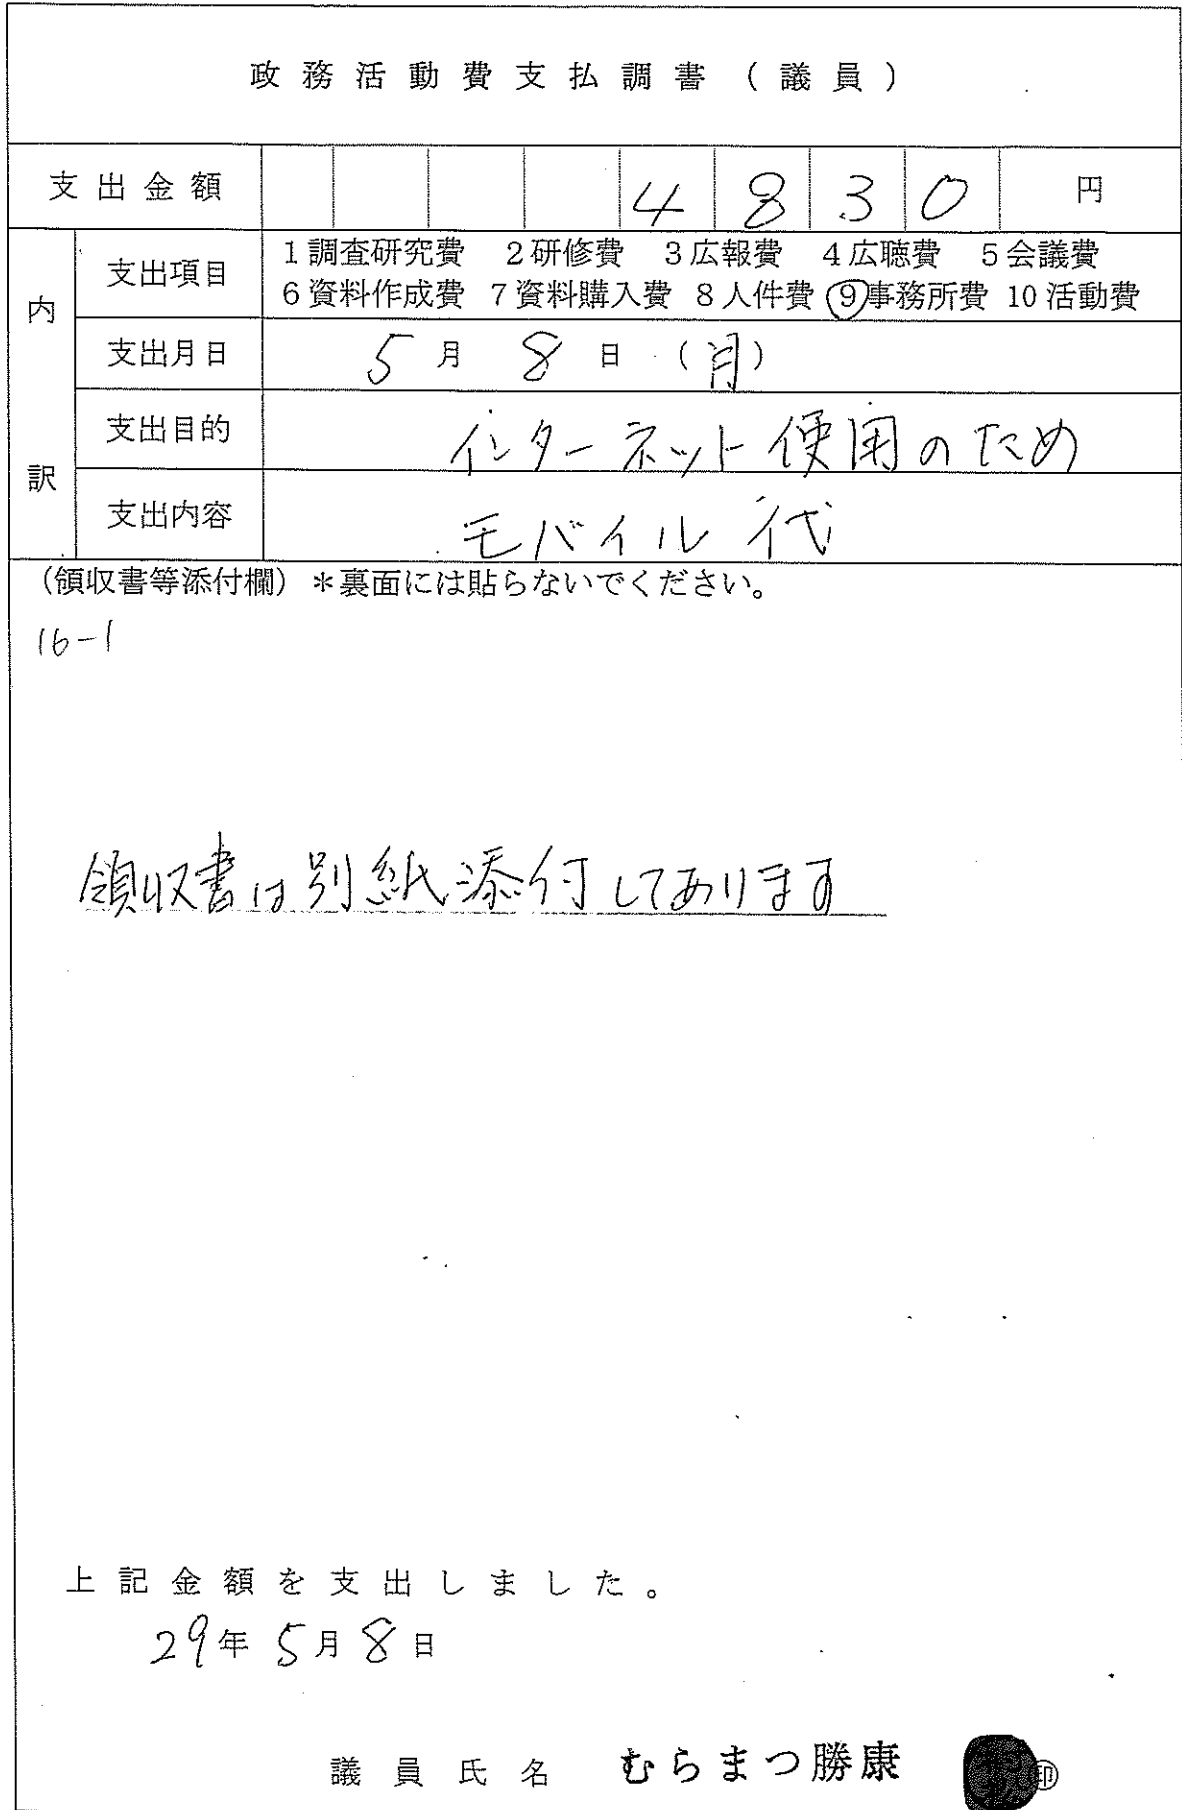 政務活動費支払調書（議員）
支出金額 4830円
内訳
支出項目 1調査研究費 2研修費 3広報費 4広聴費 5会議費
6資料作成費 7資料購入費 8人件費 ⑨事務所費 10活動費
支出月日 5月8日（月）
支出目的 インターネット使用のため
支出内容 モバイル代
（領収書等添付欄）＊裏面には貼らないでください。
16-1
領収書は別紙添付してあります
上記金額を支出しました。
29年5月8日
議員氏名 むらまつ勝康 ㊞